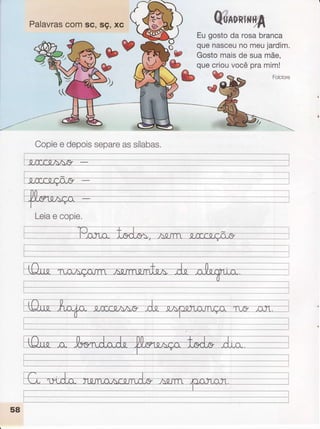 Palavras com sc, sç, xc
QUADRINHA
Eu gosto da rosa branca
que nasceu no meu jardim.
Gosto mais de sua mãe,
que criou você pra mim!
Folclore
Copie e depois separe as sílabas.
excesso —
exceção —
floresça —
Leia e copie.
Para todos, sem exceção
Que nasçam sementes de alegria.
Que haja excesso de esperança no ar.
Que a bondade floresça todo dia.
E a vida renascendo sem parar.
58